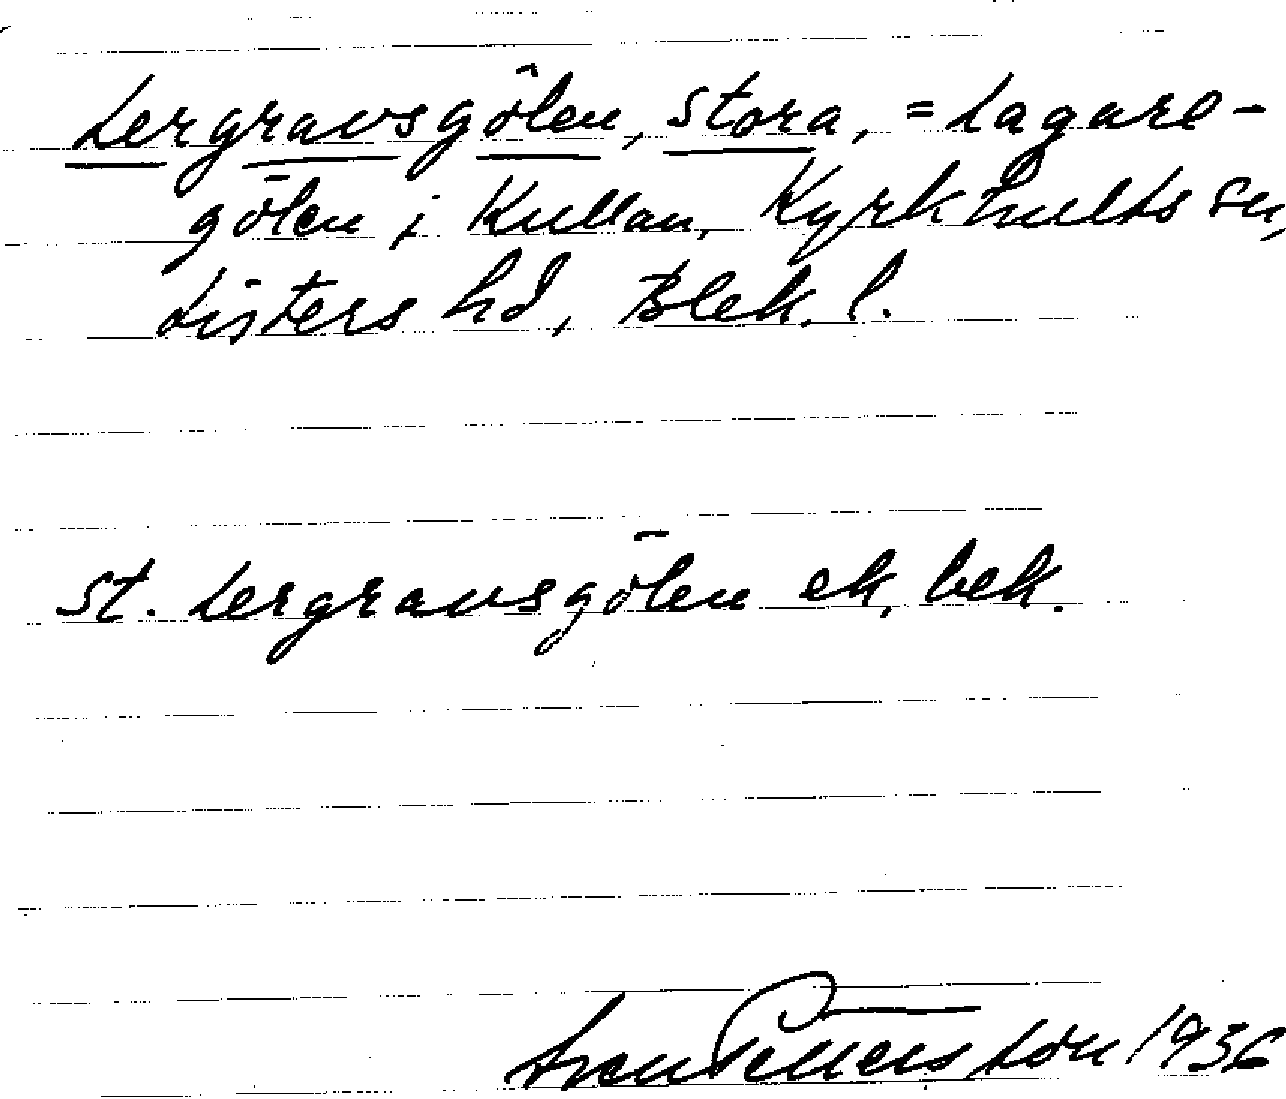 Lergravsgölen, Stora, = Lagare-
gölen i Kullan, Kyrkhults sn,
Listers hd, Blek. l.
St. Lergravsgölen ek. bek.
Sven Pettersson 1936